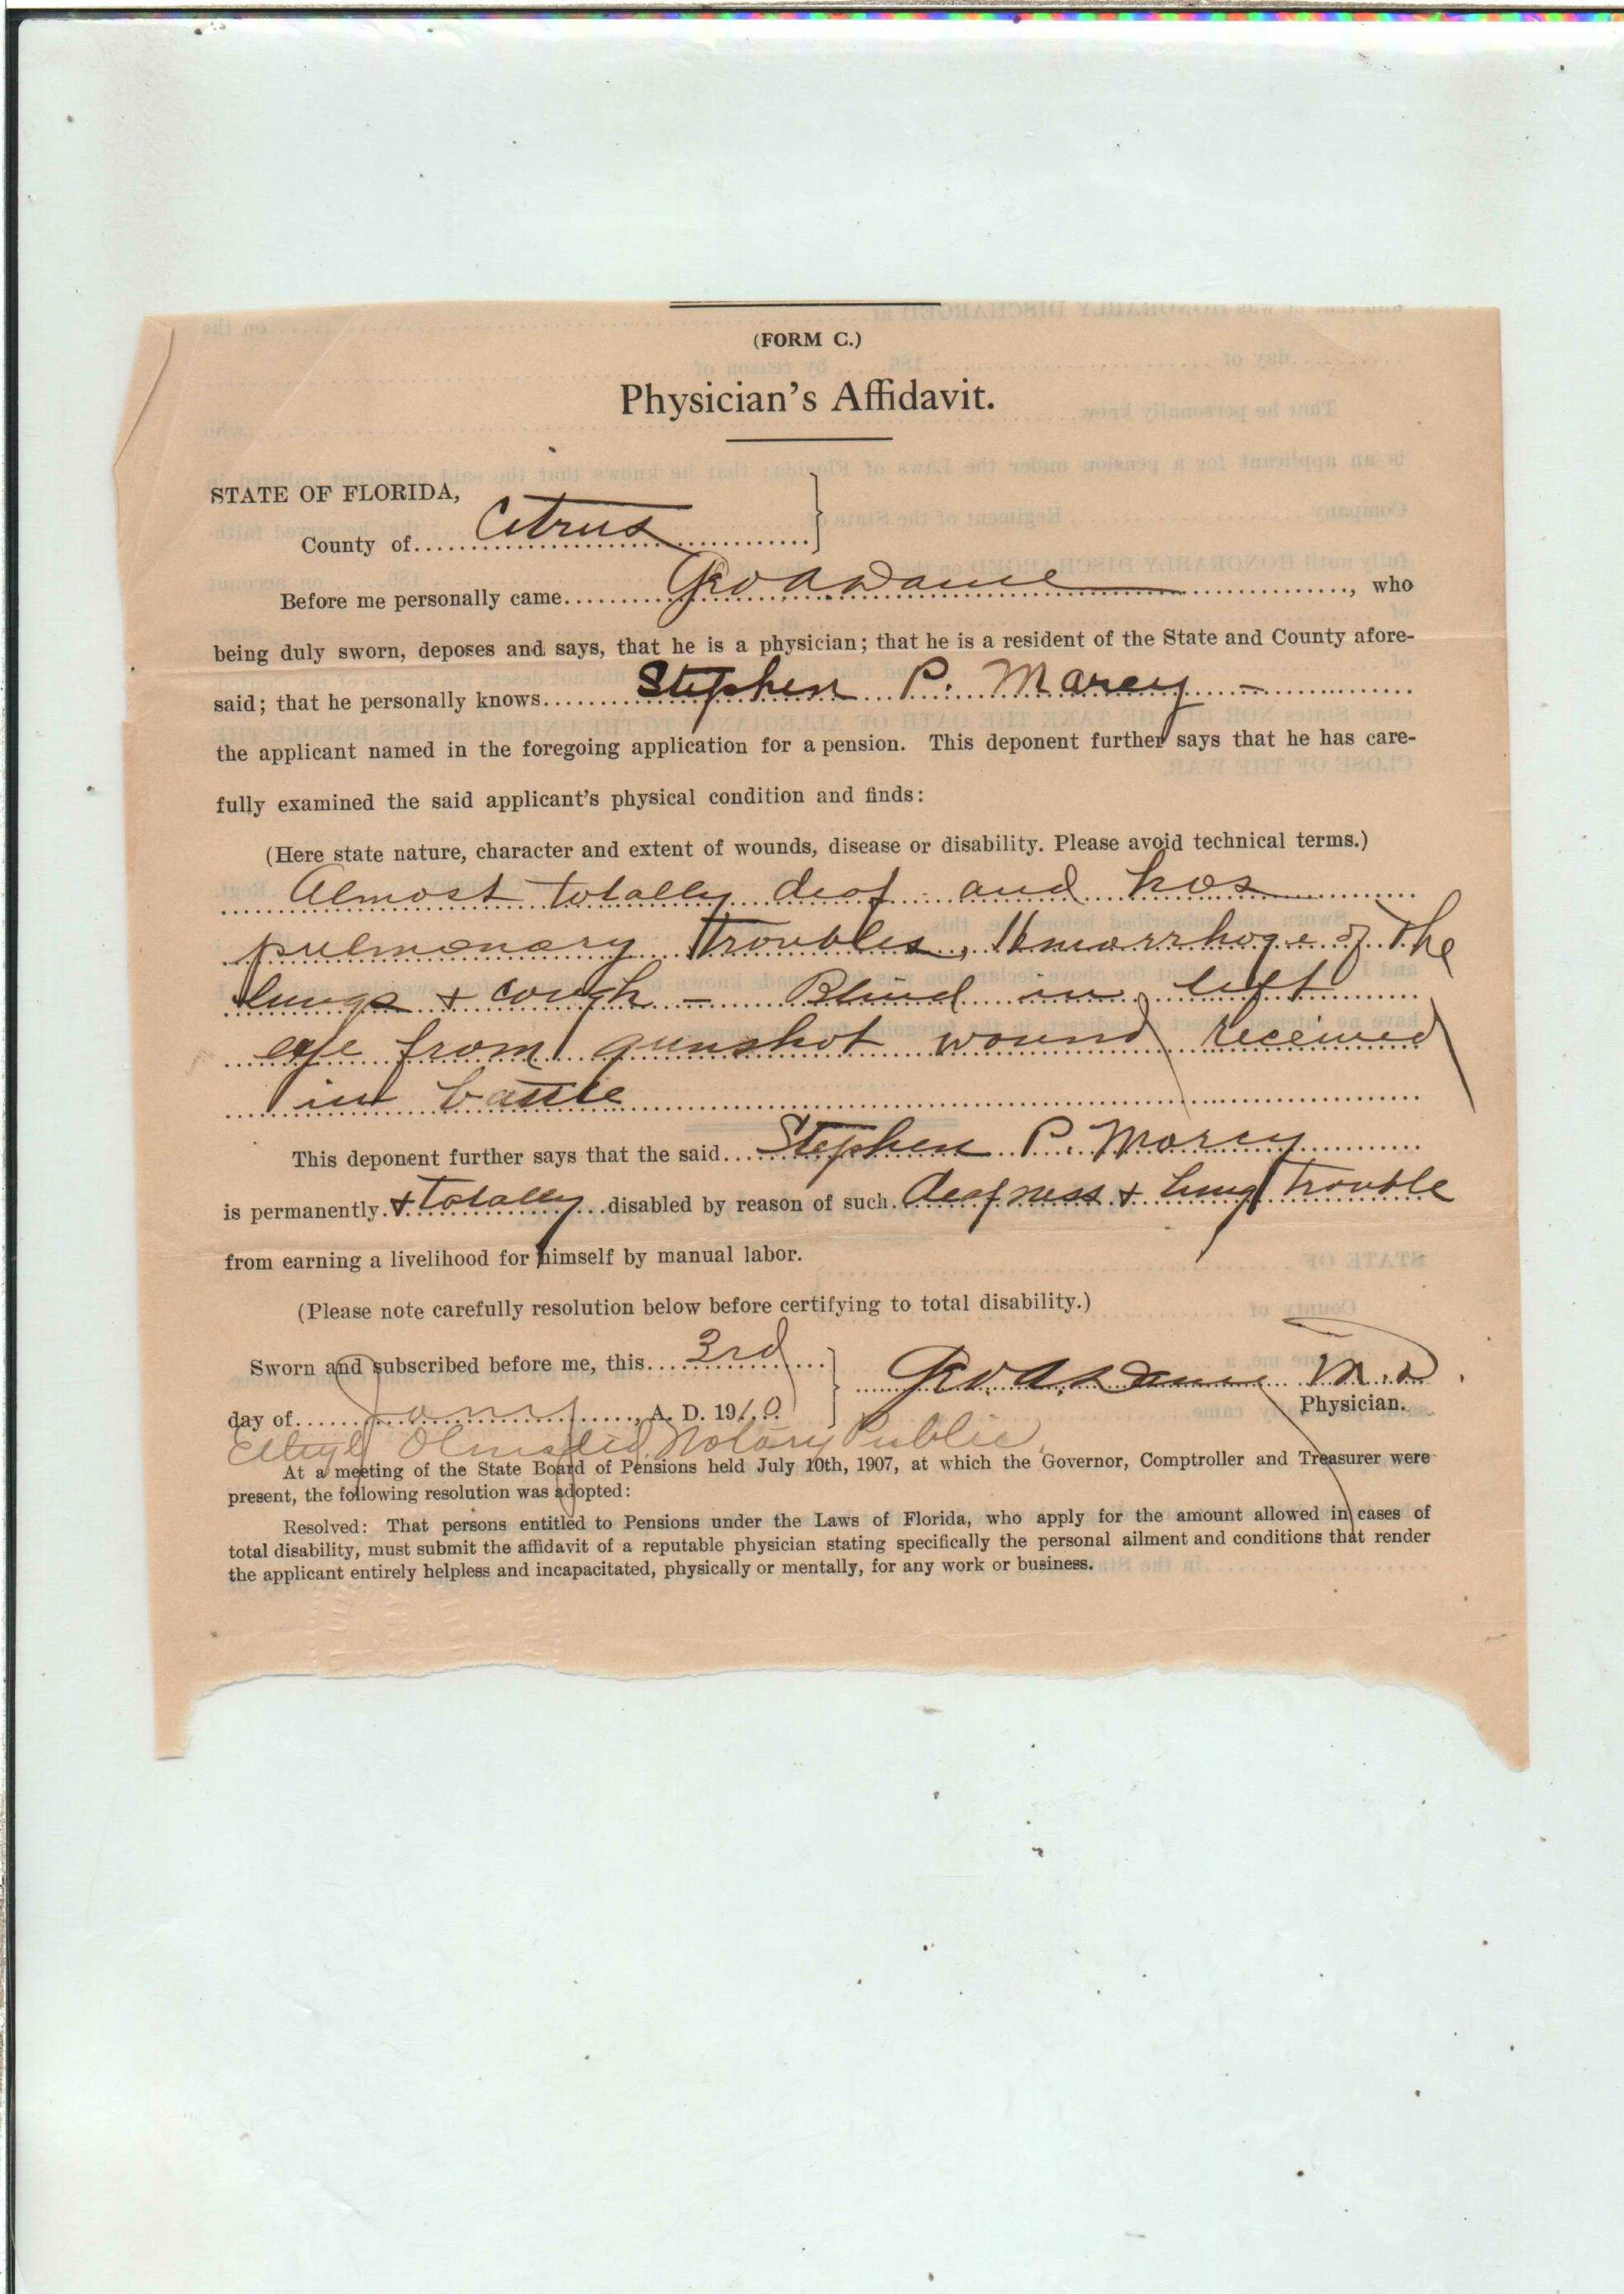 (FORM C.)
Physician's Affidavit.
STATE OF FLORIDA,
County of Citrus
Before me personally came Geo A Dame, who
being duly sworn, deposes and says, that he is a physician; that he is a resident of the State and County afore-
said; that he personally knows Stephen P. Marcy
the applicant named in the foregoing application for a pension. This deponent further says that he has care-
fully examined the said applicant's physical condition and finds:
(Here state nature, character and extent of wounds, disease or disability. Please avoid technical terms.)
Almost totally deaf and has
pulmonary troubles, Hemorrhage of the
lungs + cough - Blind in left
eye from gunshot wound received
in battle
This deponent further says that the said Stephen P. Marcy
is permanently + totally disabled by reason of such deafness + lung trouble
from earning a livelihood for himself by manual labor.
(Please note carefully resolution below before certifying to total disability.)
Sworn and subscribed before me, this 3rd
day of Jany, A. D. 1910
Geo. A. Dame M.D.
Physician.
Notary Public
At a meeting of the State Board of Pensions held July 10th, 1907, at which the Governor, Comptroller and Treasurer were
present, the following resolution was adopted:
Resolved: That persons entitled to Pensions under the Laws of Florida, who apply for the amount allowed in cases of
total disability, must submit the affidavit of a reputable physician stating specifically the personal ailment and conditions that render
the applicant entirely helpless and incapacitated, physically or mentally, for any work or business.